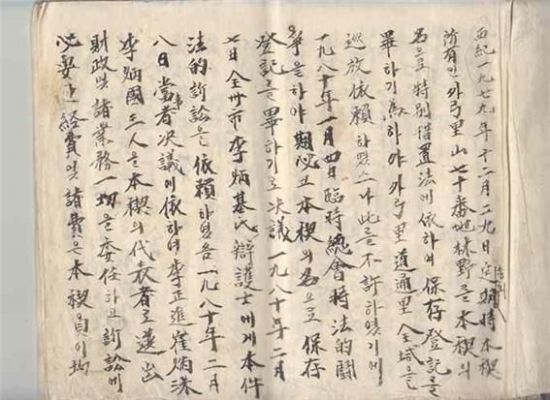 西紀一九七九年十二月二九日 定期時 本稧
所有인 外弓里山七十番地林野를 本稧의
名으로 特別措置法에 依하여 保存登記를
畢하기 爲하야 外弓里 道通里 全域을
巡放依賴하였으나 此를 不許하였기에
一九八十年一月四日 臨時總會時 法的鬪
爭을 하야 期必고 本稧의 名으로 保存
登記를 畢하기로 決議 一九八十年二月
七日 全州市 李炳基氏 辯護士에게 本件
法的訴訟을 依賴하였음 一九八十年二月
八日 當者決議에 依하여 李正進 崔炳洙
李炳國 三人을 本稧의 代表者로 選出
財政및 諸業務一切을 委任하고 訴訟에
必要한 経費및 諸費은 本稧員이 均